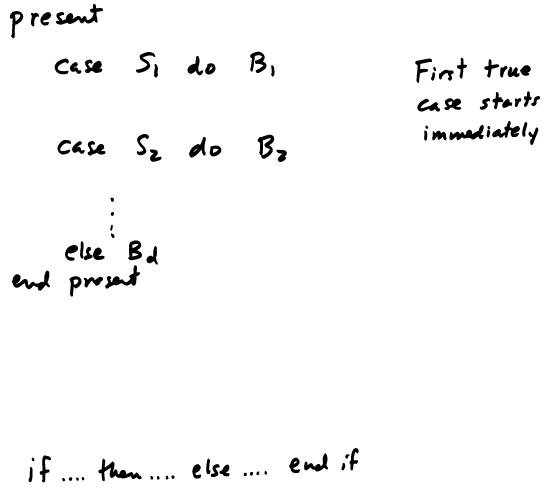 present
case S₁ do B₁
First true
case starts
immediately
case S₂ do B₂
⋮
else B_d
end present
if .... then .... else .... end if